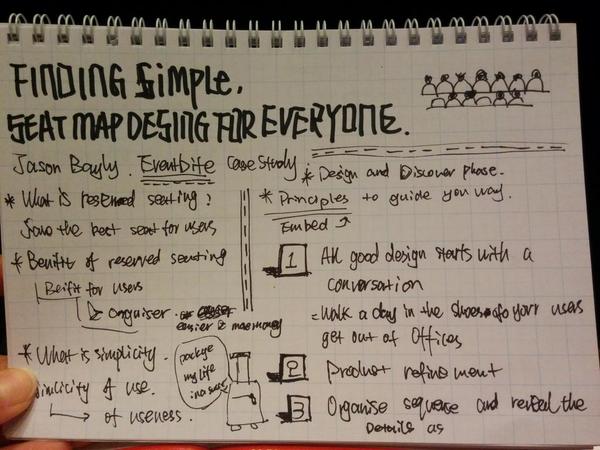 FINDING Simple.
SEAT MAP DESING FOR EVERYONE.
Jason Bayly. EventBite case study
* What is reserved seating?
Save the best seat for users
* Benifit of reserved seating
Beifit for users
organiser.
easier & more money
* What is simplicity.
Simlicity of use.
of useness.
package
my life
in a suitcase
* Design and Discover phase.
* Principles to guide you way.
Embed
1 All good design starts with a
conversation
= Walk a day in the shoes of your users
get out of offices
2 Product refinement
3 Organise sequence and reveal the
Details as